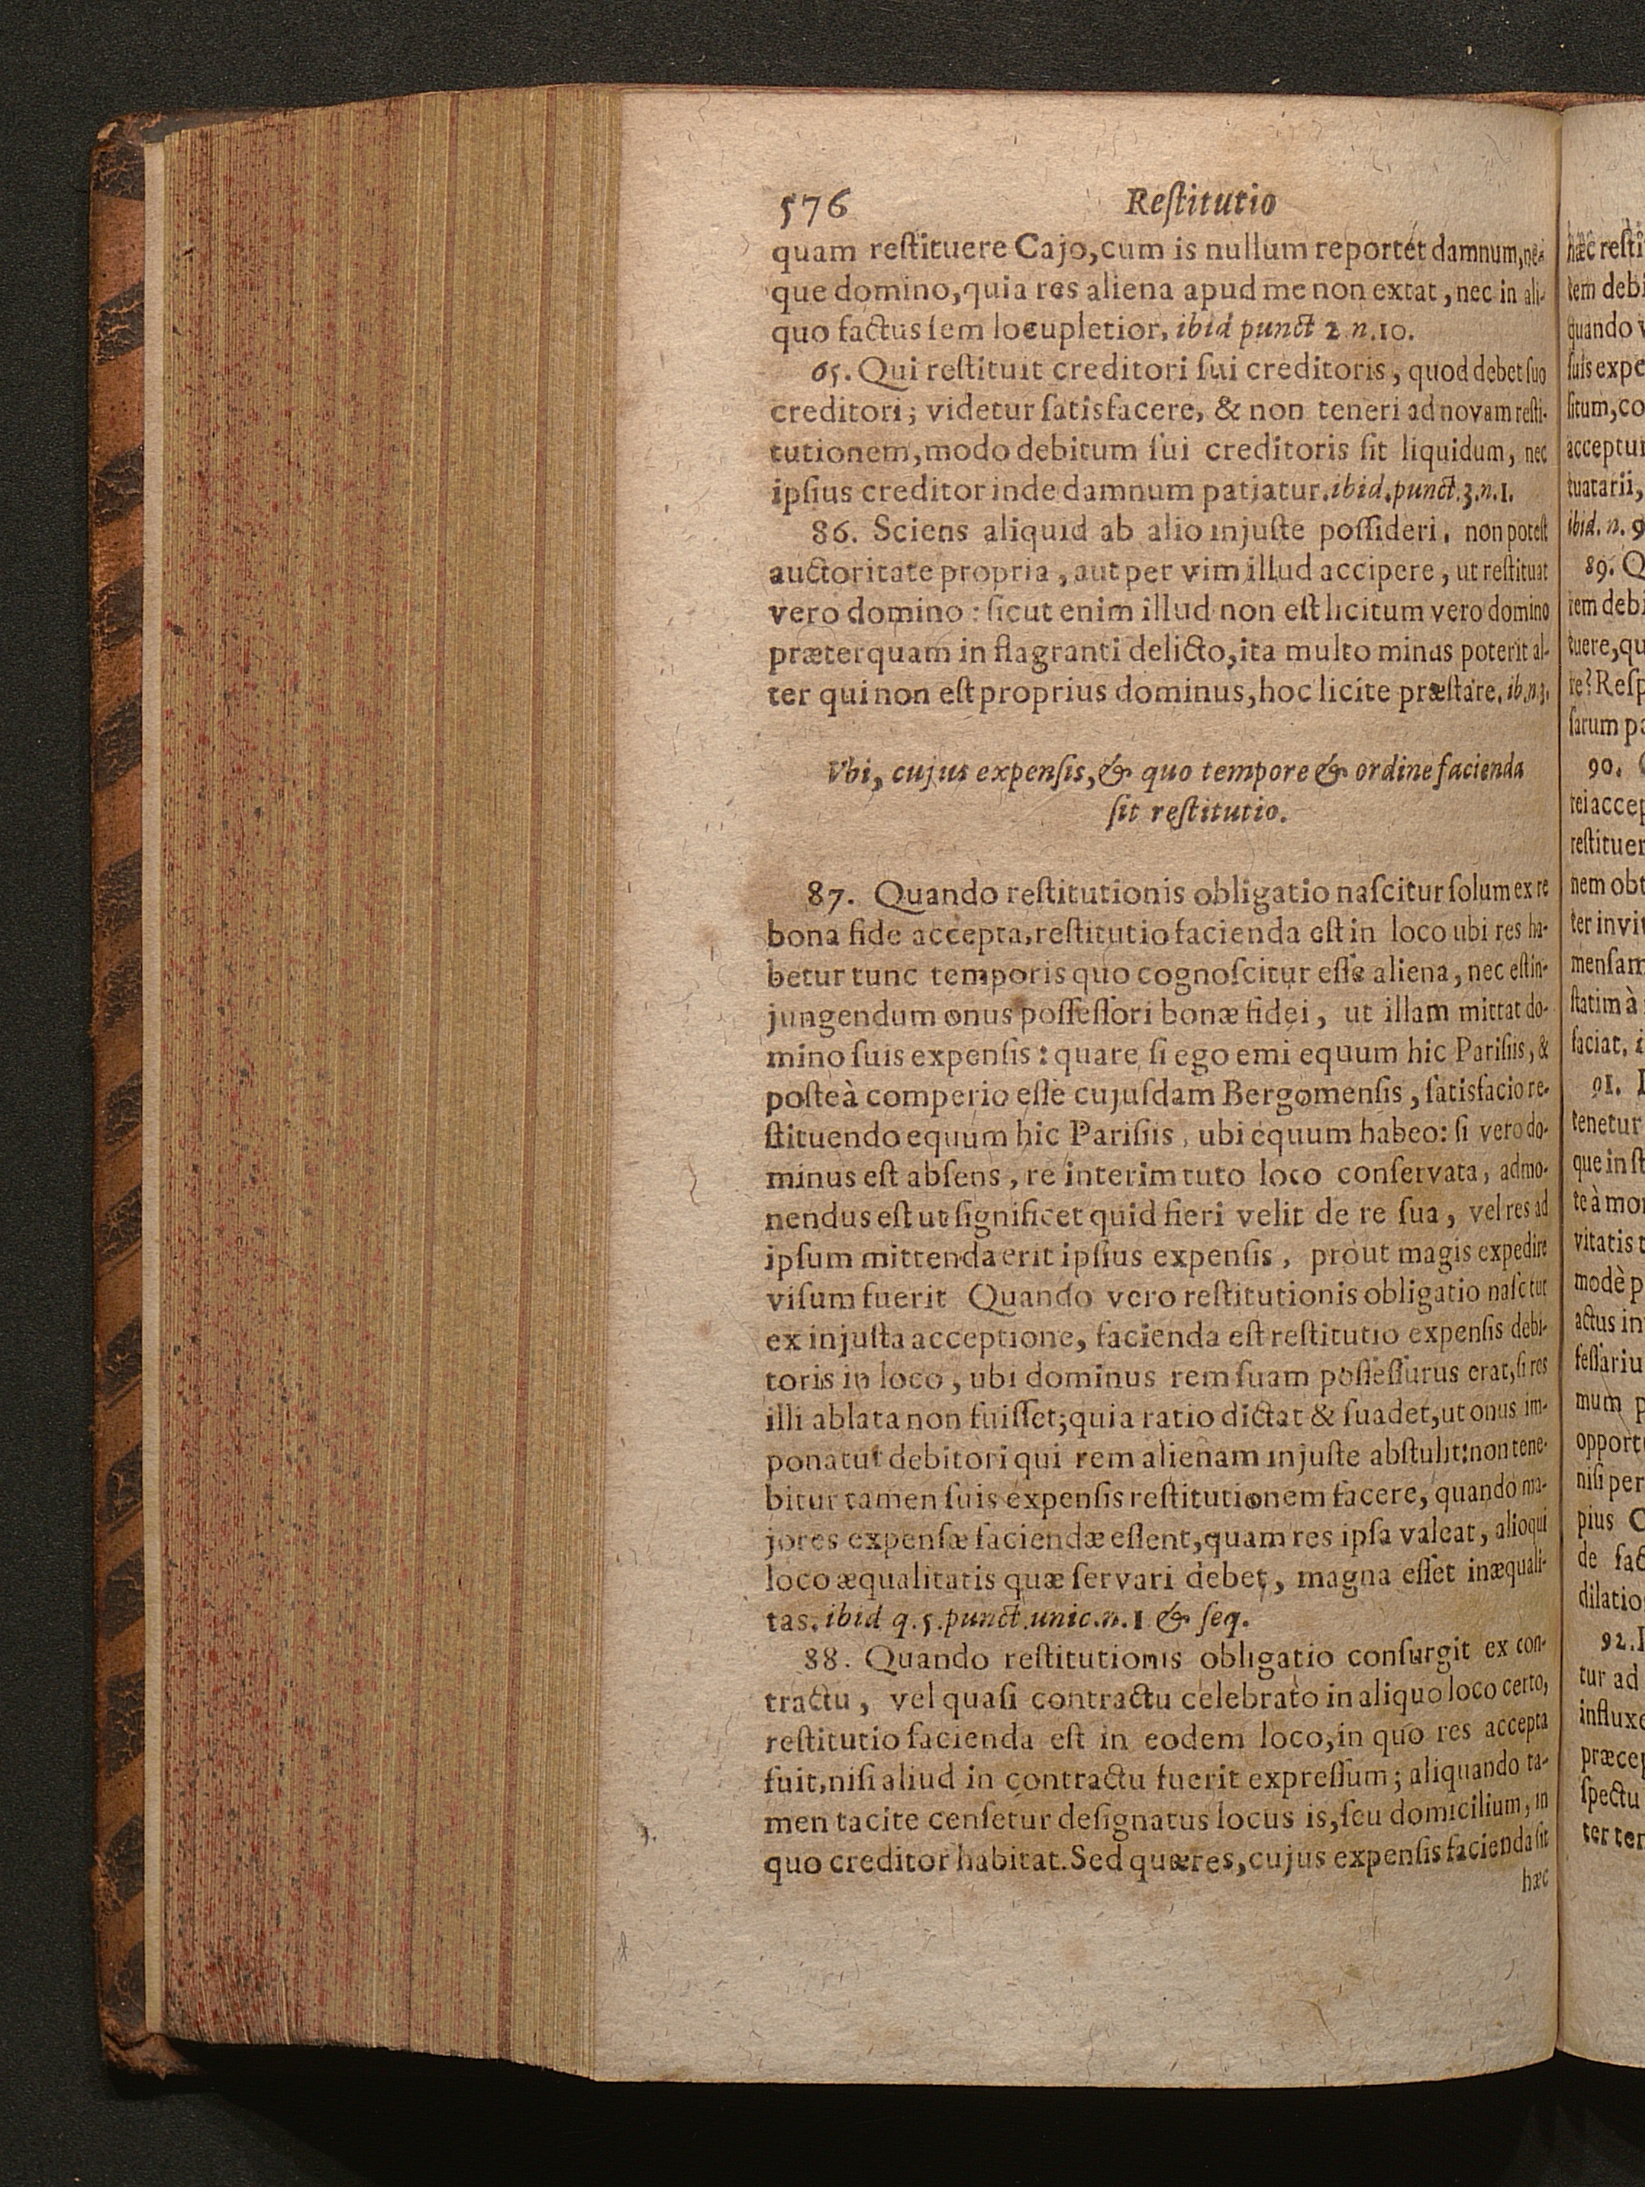 576 Reſtitutio
quam reſtituere Cajo, cum is nullum reportet damnum, ne-
que domino, quia res aliena apud me non extat, nec in ali-
quo factus ſem locupletior. ibid punct 2. n. 10.
65. Qui reſtituit creditori ſui creditoris, quod debet ſuo
creditori; videtur ſatisfacere, & non teneri ad novam reſti-
tutionem, modo debitum ſui creditoris ſit liquidum, nec
ipſius creditor inde damnum patiatur. ibid. punct. 3. n. 1.
86. Sciens aliquid ab alio injuſte poſſideri, non poteſt
auctoritate propria, aut per vim illud accipere, ut reſtituat
vero domino: ſicut enim illud non eſt licitum vero domino
præterquam in flagranti delicto, ita multo minus poterit al-
ter qui non eſt proprius dominus, hoc licite præſtare. ib. n. 3.
Vbi, cujus expenſis, & quo tempore & ordine facienda
ſit reſtitutio.
87. Quando reſtitutionis obligatio naſcitur ſolum ex re
bona fide accepta, reſtitutio facienda eſt in loco ubi res ha-
betur tunc temporis quo cognoſcitur eſſe aliena, nec eſt in-
jungendum onus poſſeſſori bonæ fidei, ut illam mittat do-
mino ſuis expenſis: quare ſi ego emi equum hic Pariſiis, &
poſteà comperio eſſe cujuſdam Bergomenſis, ſatisfacio re-
ſtituendo equum hic Pariſiis, ubi equum habeo: ſi vero do-
minus eſt abſens, re interim tuto loco conſervata, admo-
nendus eſt ut ſignificet quid fieri velit de re ſua, vel res ad
ipſum mittenda erit ipſius expenſis, prout magis expedire
viſum fuerit Quando vero reſtitutionis obligatio naſctur
ex injuſta acceptione, facienda eſt reſtitutio expenſis debi-
toris in loco, ubi dominus rem ſuam poſſeſſurus erat, ſi res
illi ablata non fuiſſet; quia ratio dictat & ſuadet, ut onus im-
ponatur debitori qui rem alienam injuſte abſtulit: non tene-
bitur tamen ſuis expenſis reſtitutionem facere, quando ma-
jores expenſæ faciendæ eſſent, quam res ipſa valeat, alioqui
loco æqualitatis quæ ſervari debet, magna eſſet inæquali-
tas. ibid q. 5. punct. unic. n. 1 & ſeq.
88. Quando reſtitutionis obligatio conſurgit ex con-
tractu, vel quaſi contractu celebrato in aliquo loco certo,
reſtitutio facienda eſt in eodem loco, in quo res accepta
fuit, niſi aliud in contractu fuerit expreſſum; aliquando ta-
men tacite cenſetur deſignatus locus is, ſeu domicilium, in
quo creditor habitat. Sed quæres, cujus expenſis facienda ſit
hæc
hæc reſti
tem debi
quando
ſuis expe
ſitum, co
acceptu
tuatarii,
ibid. n. 9
89. Q
rem debi
tuere, qu
re? Reſp
ſarum pa
90.
rei accep
reſtituer
nem obt
ter invit
menſam
ſtatim à
faciat,
91.
tenetur
que in ſt
te à mor
vitatis t
modè p
actus in
feſſariu
mum p
opport
niſi per
pius C
de fac
dilatio
92.
tur ad
influxe
præcep
ſpectu
ter ter